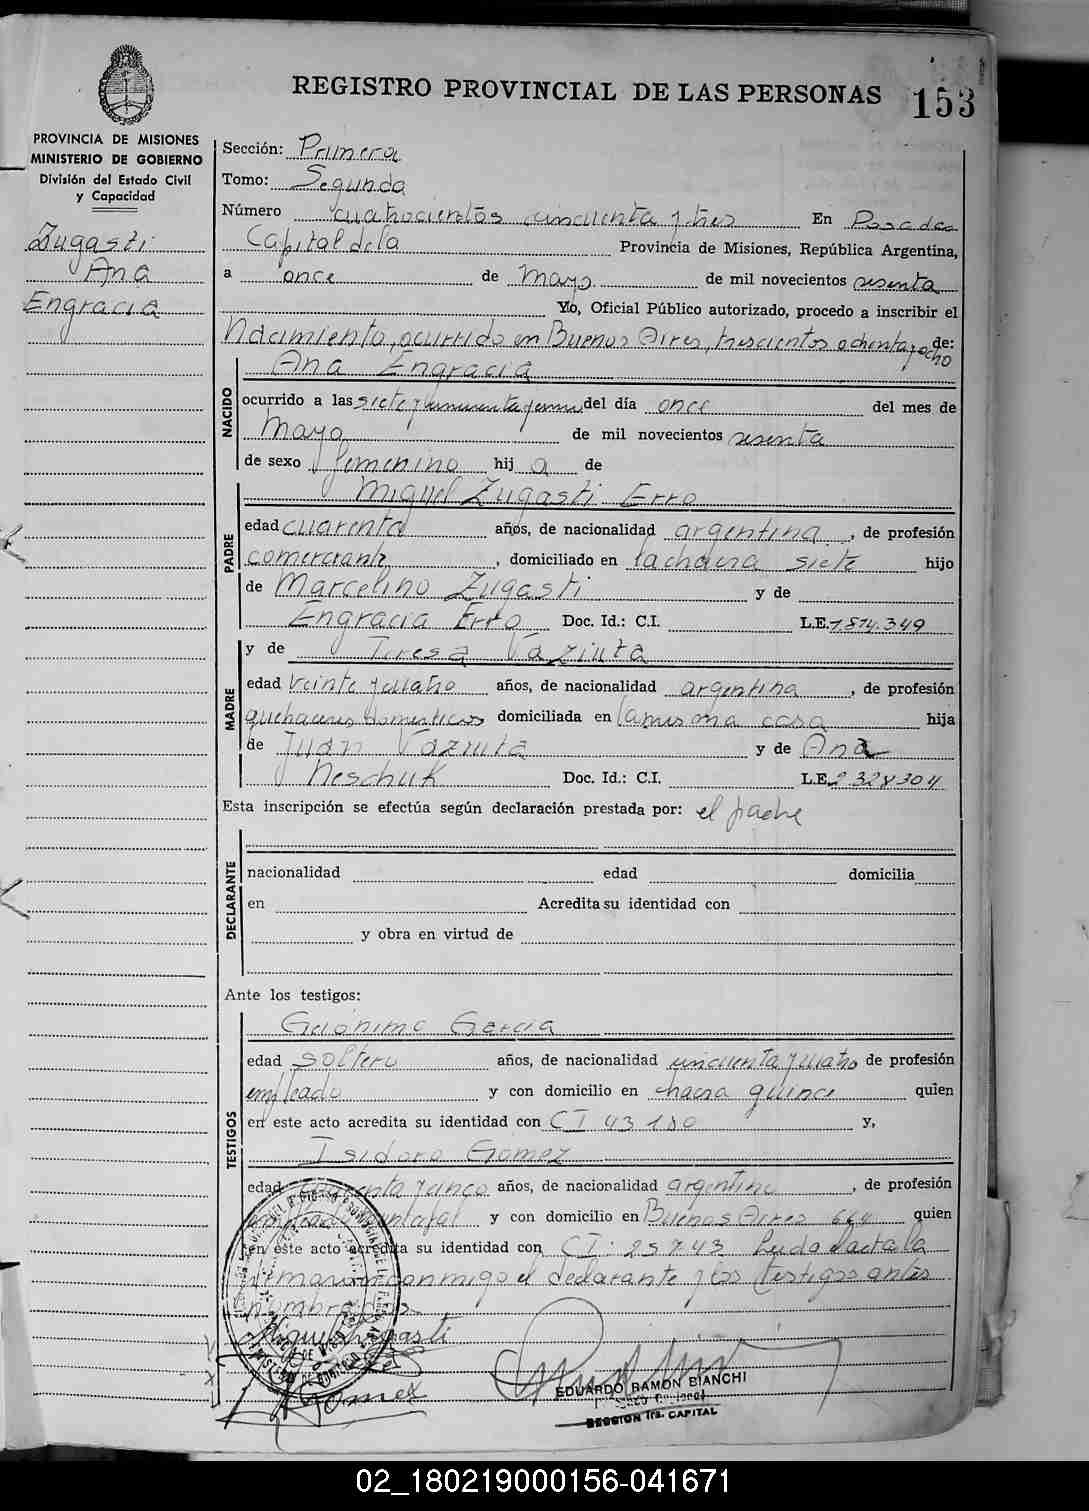 REGISTRO PROVINCIAL DE LAS PERSONAS
153
PROVINCIA DE MISIONES
MINISTERIO DE GOBIERNO
División del Estado Civil
y Capacidad
Zugasti
Ana
Engracia
Sección: Primera
Tomo: Segundo
Número cuatrocientos cincuenta y tres En Posadas
Capital de la Provincia de Misiones, República Argentina,
a once de mayo de mil novecientos sesenta
Yo, Oficial Público autorizado, procedo a inscribir el
Nacimiento, ocurrido en Buenos Aires, trescientos ochenta y ocho de:
Ana Engracia
NACIDO
ocurrido a las siete y cincuenta y del día once del mes de
mayo de mil novecientos sesenta
de sexo femenino hij a de
PADRE
Miguel Zugasti Erro
edad cuarenta años, de nacionalidad argentina, de profesión
comerciante, domiciliado en la chacra siete hijo
de Marcelino Zugasti y de
Engracia Erro Doc. Id.: C.I. L.E. 7.814.349
MADRE
y de Teresa Vaziuta
edad veinte y cuatro años, de nacionalidad argentina, de profesión
quehaceres domesticos domiciliada en la misma casa hija
de Juan Vaziuta y de Ana
Neschuk Doc. Id.: C.I. L.E. 2328304
Esta inscripción se efectúa según declaración prestada por: el padre
DECLARANTE
nacionalidad edad domicilia
en Acredita su identidad con
y obra en virtud de
Ante los testigos:
TESTIGOS
Gerónimo García
edad soltero años, de nacionalidad cincuenta y cuatro de profesión
empleado y con domicilio en chacra quince quien
en este acto acredita su identidad con CI 43180 y,
Isidoro Gomez
edad y cinco años, de nacionalidad argentino, de profesión
y con domicilio en Buenos Aires 664 quien
en este acto acredita su identidad con CI: 25743 Leida el acta la
firmaron conmigo el declarante y los testigos antes
nombrados.
Miguel Zugasti
Gomez
EDUARDO RAMON BIANCHI
SECCION 1ra. CAPITAL
02_180219000156-041671